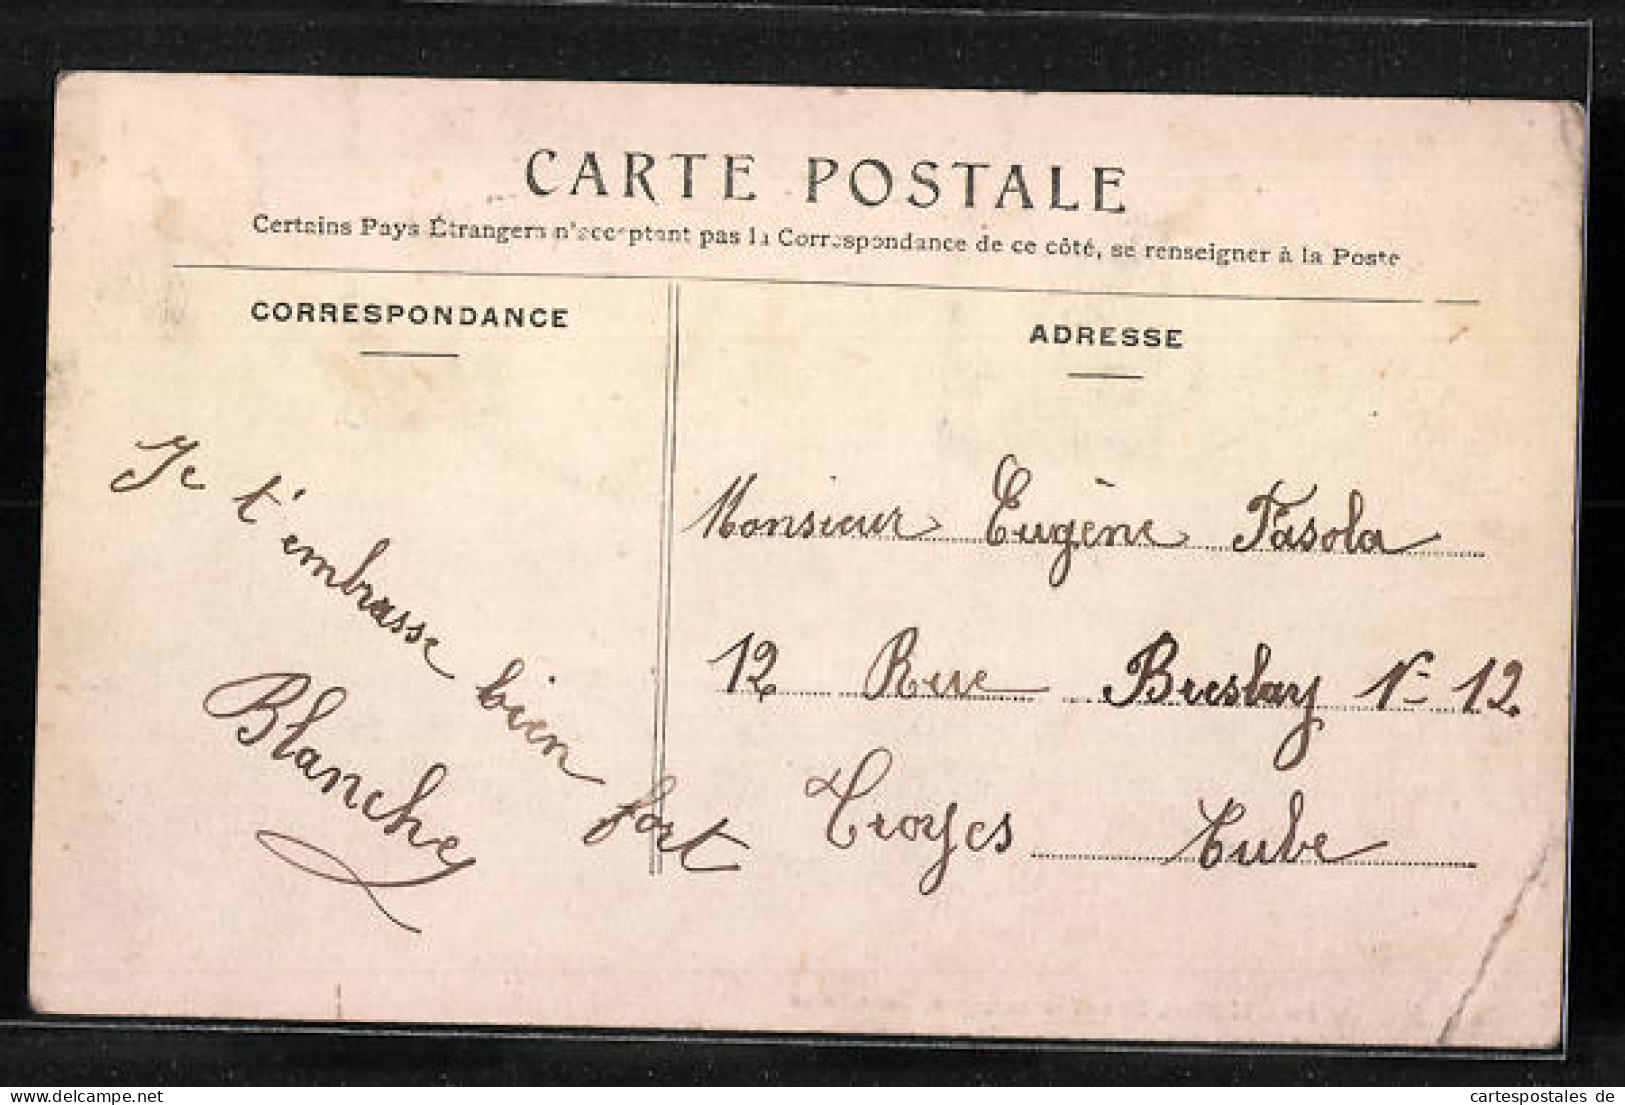 CARTE POSTALE
Certains Pays Étrangers n'acceptent pas la Correspondance de ce côté, se renseigner à la Poste
CORRESPONDANCE
Je t'embrasse bien fort
Blanche
ADRESSE
Monsieur Eugène Fasola
12 Rue Breslay N- 12
Troyes Aube
www.delcampe.net
cartespostales de